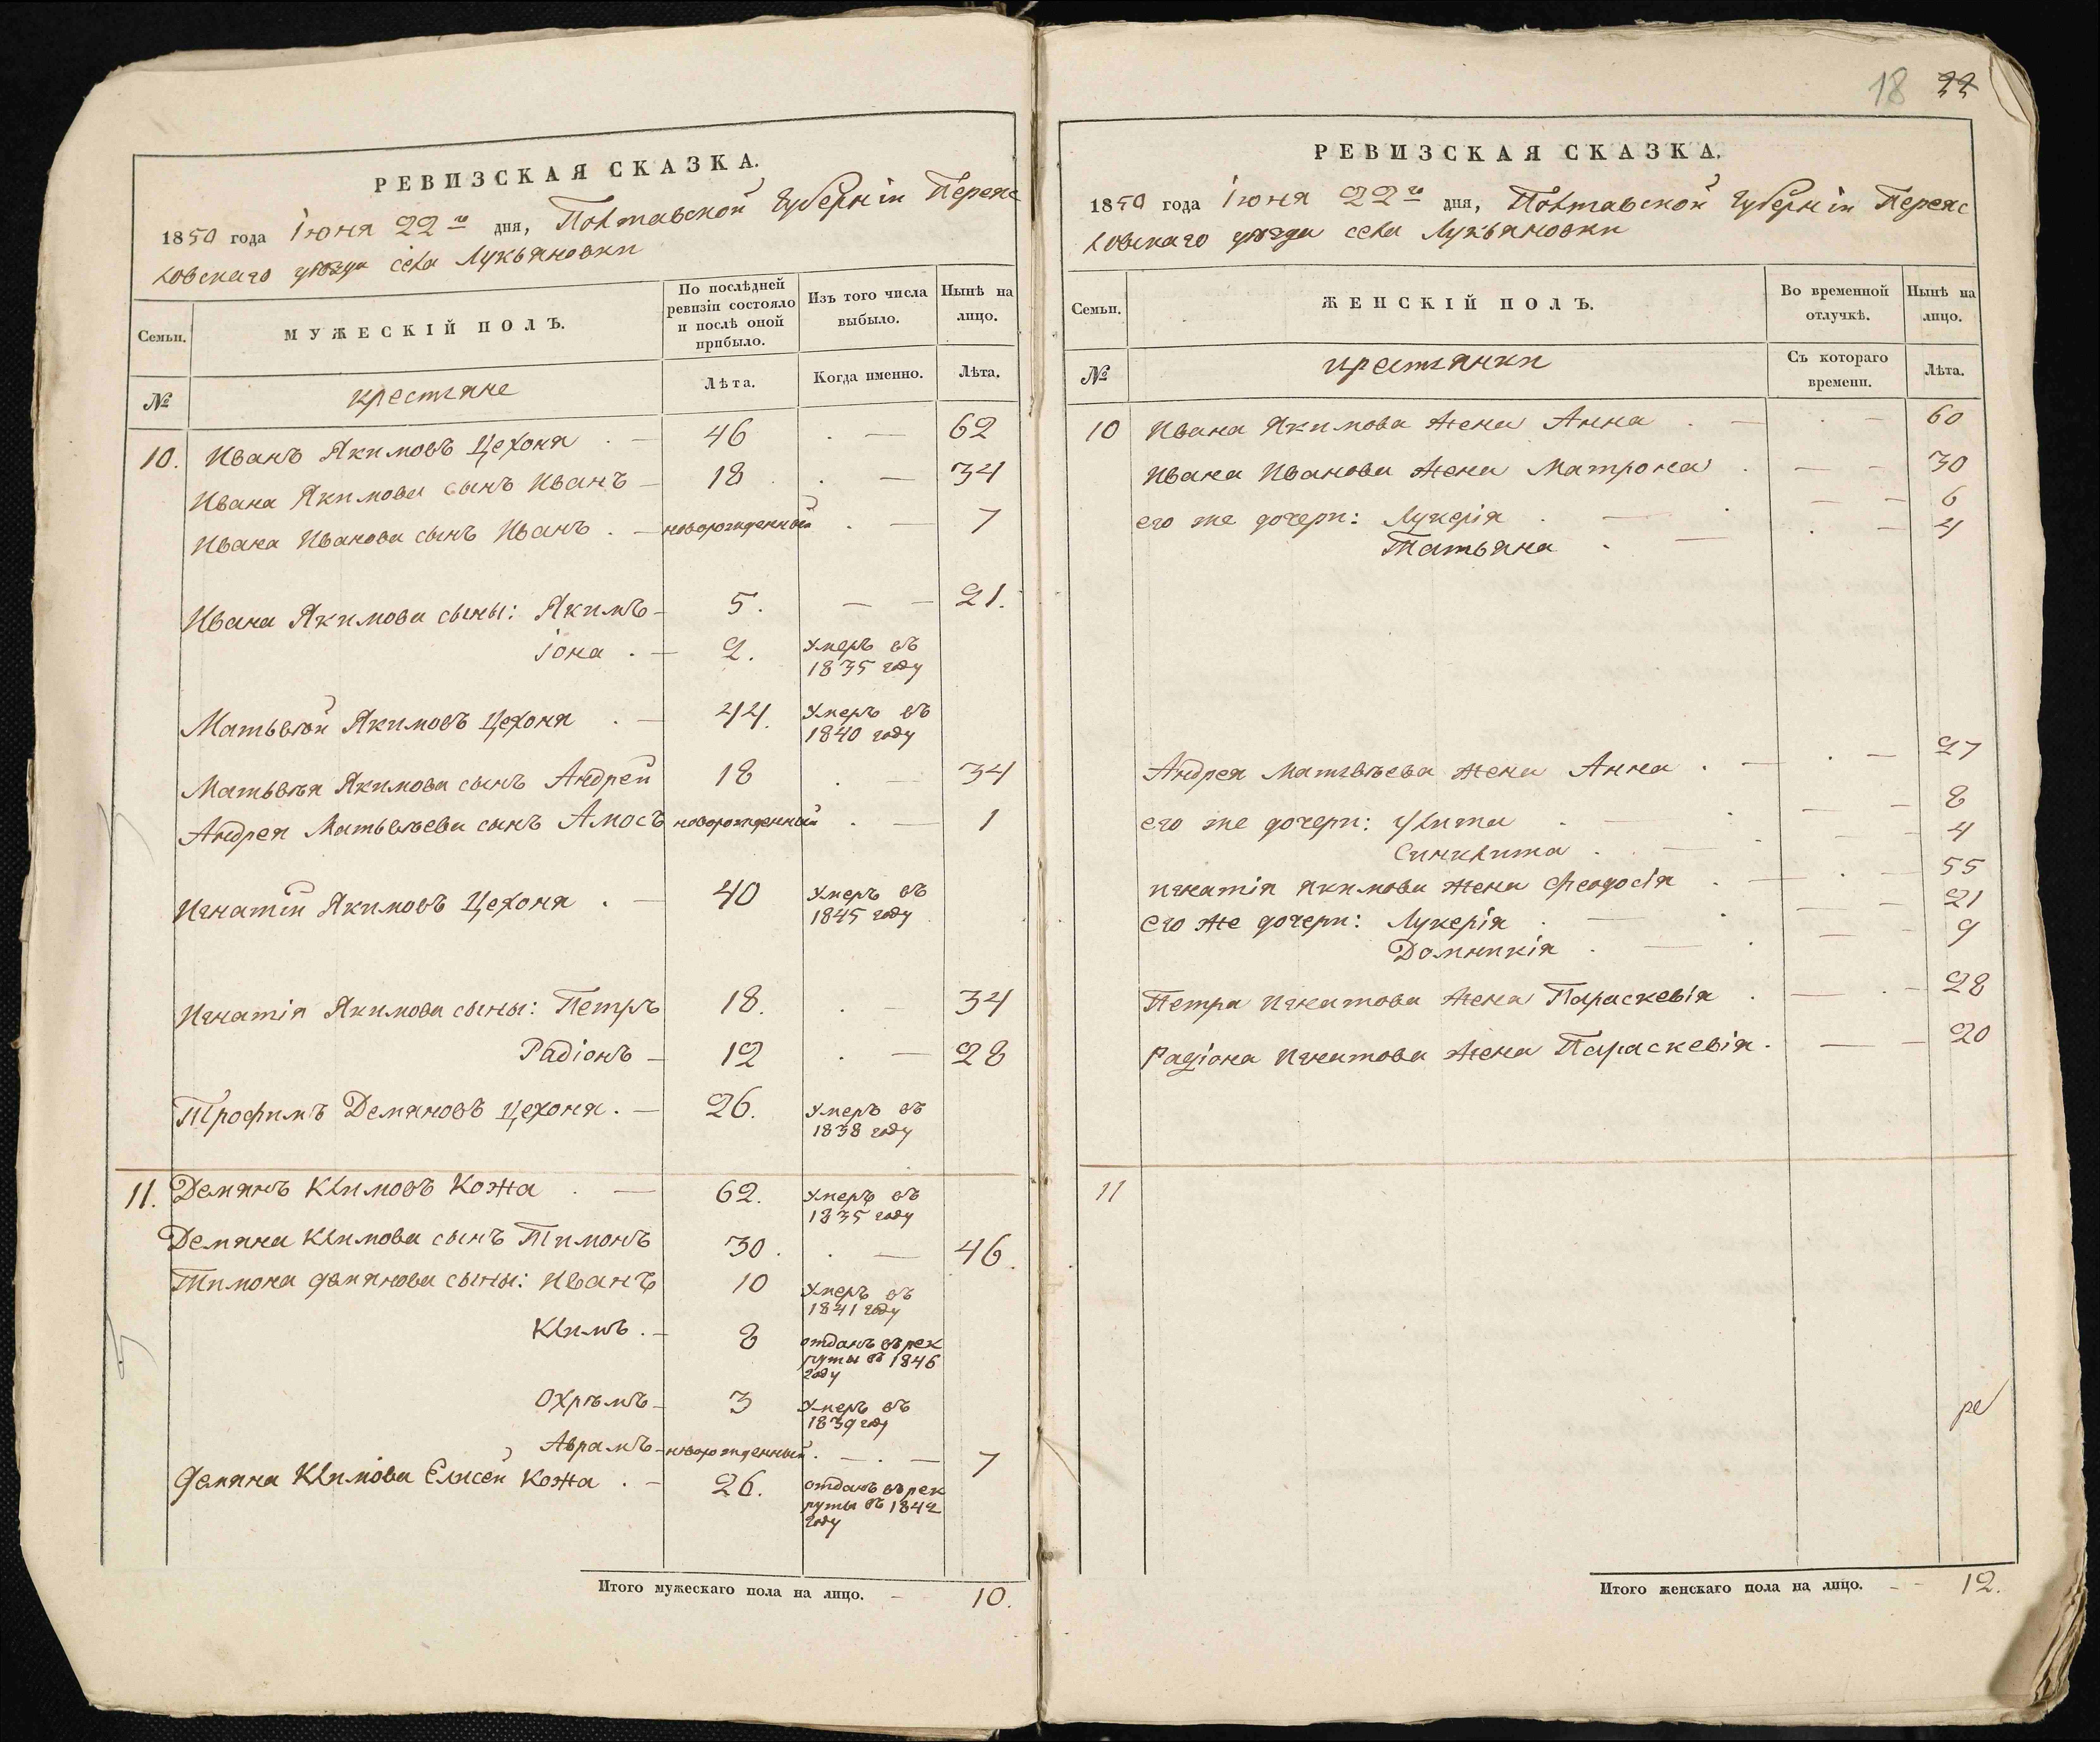 РЕВИЗСКАЯ СКАЗКА.
1850 года Іюня 22го дня, Полтавской Губерніи Переяс
ловскаго уѣзда села Лукьяновки
Семьи.
МУЖЕСКІЙ ПОЛЪ.
По послѣдней
ревизіи состояло
и послѣ оной
прибыло.
Изъ того числа
выбыло.
Нынѣ на
лицо.
№
крестяне
Лѣта.
Когда именно.
Лѣта.
10. Иванъ Якимовъ Цехоня . — 46 . — 62
Ивана Якимова сынъ Иванъ — 18 . — 34
Ивана Иванова сынъ Иванъ . — новорожденный . — 7
Ивана Якимова сыны: Якимъ — 5. — — 21.
Іона . — 2. Умеръ въ
1835 году
Матьвѣй Якимовъ Цехоня . — 44. Умеръ въ
1840 году
Матьвѣя Якимова сынъ Андрей 18 . — 34
Андрея Матьвѣева сынъ Амосъ новорожденный . — 1
Игнатій Якимовъ Цехоня . — 40 Умеръ въ
1845 году
Игнатія Якимова сыны: Петръ 18. . — 34
Радіонъ — 12 . — 28
Трофимъ Демяновъ Цехоня . — 26. Умеръ въ
1838 году
11. Демянъ Климовъ Кожа . — 62. Умеръ въ
1835 году
Демяна Климова сынъ Тимонъ 30. . — 46.
Тимона Демянова сыны: Иванъ 10 Умеръ въ
1841 году
Климъ . — 8 отданъ въ рек
руты въ 1846
году
Охрѣмъ — 3 Умеръ въ
1839 году
Аврамъ — новорожденный . — . — 7
Демяна Климова Елисей Кожа . — 26. отданъ въ рек
руты въ 1842
году
Итого мужескаго пола на лицо. — 10.
18 22
РЕВИЗСКАЯ СКАЗКА.
1850 года Іюня 22го дня, Полтавской Губерніи Переяс
ловскаго уѣзда села Лукьяновки
Семьи.
ЖЕНСКІЙ ПОЛЪ.
Во временной
отлучкѣ.
Нынѣ на
лицо.
№
крестянки
Съ котораго
времени.
Лѣта.
10 Ивана Якимова жена Анна . — . — 60
Ивана Иванова жена Матрона . — — 30
его же дочери: Лукерія . — . — — 6
Татьяна . — . — 4
Андрея Матвѣева жена Анна . — . — 27
его же дочери: Улита . — . — — 8
Синклита . — . — — 4
Игнатія Якимова жена Феодосія . — . — 55
его же дочери: Лукерія . — . — — 21
Домникія . — . — — 9
Петра Игнатова жена Параскевія . — . — 28
Радіона Игнатова жена Параскевія . — — 20
11
Итого женскаго пола на лицо. — — 12.